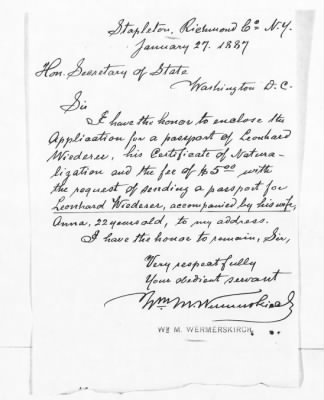 Stapleton, Richmond Co. N.Y.
January 27. 1887
Hon. Secretary of State
Washington D.C.
Sir
I have the honor to enclose the
Application for a passport of Leonhard
Wiederer, his Certificate of Natura-
lization and the fee of $5.00 with
the request of sending a passport for
Leonhard Wiederer, accompanied by his wife,
Anna, 22 years old, to my address.
I have the honor to remain, Sir,
Very respectfully
Your obedient servant
Wm M. Wermerskirch
WM M. WERMERSKIRCH